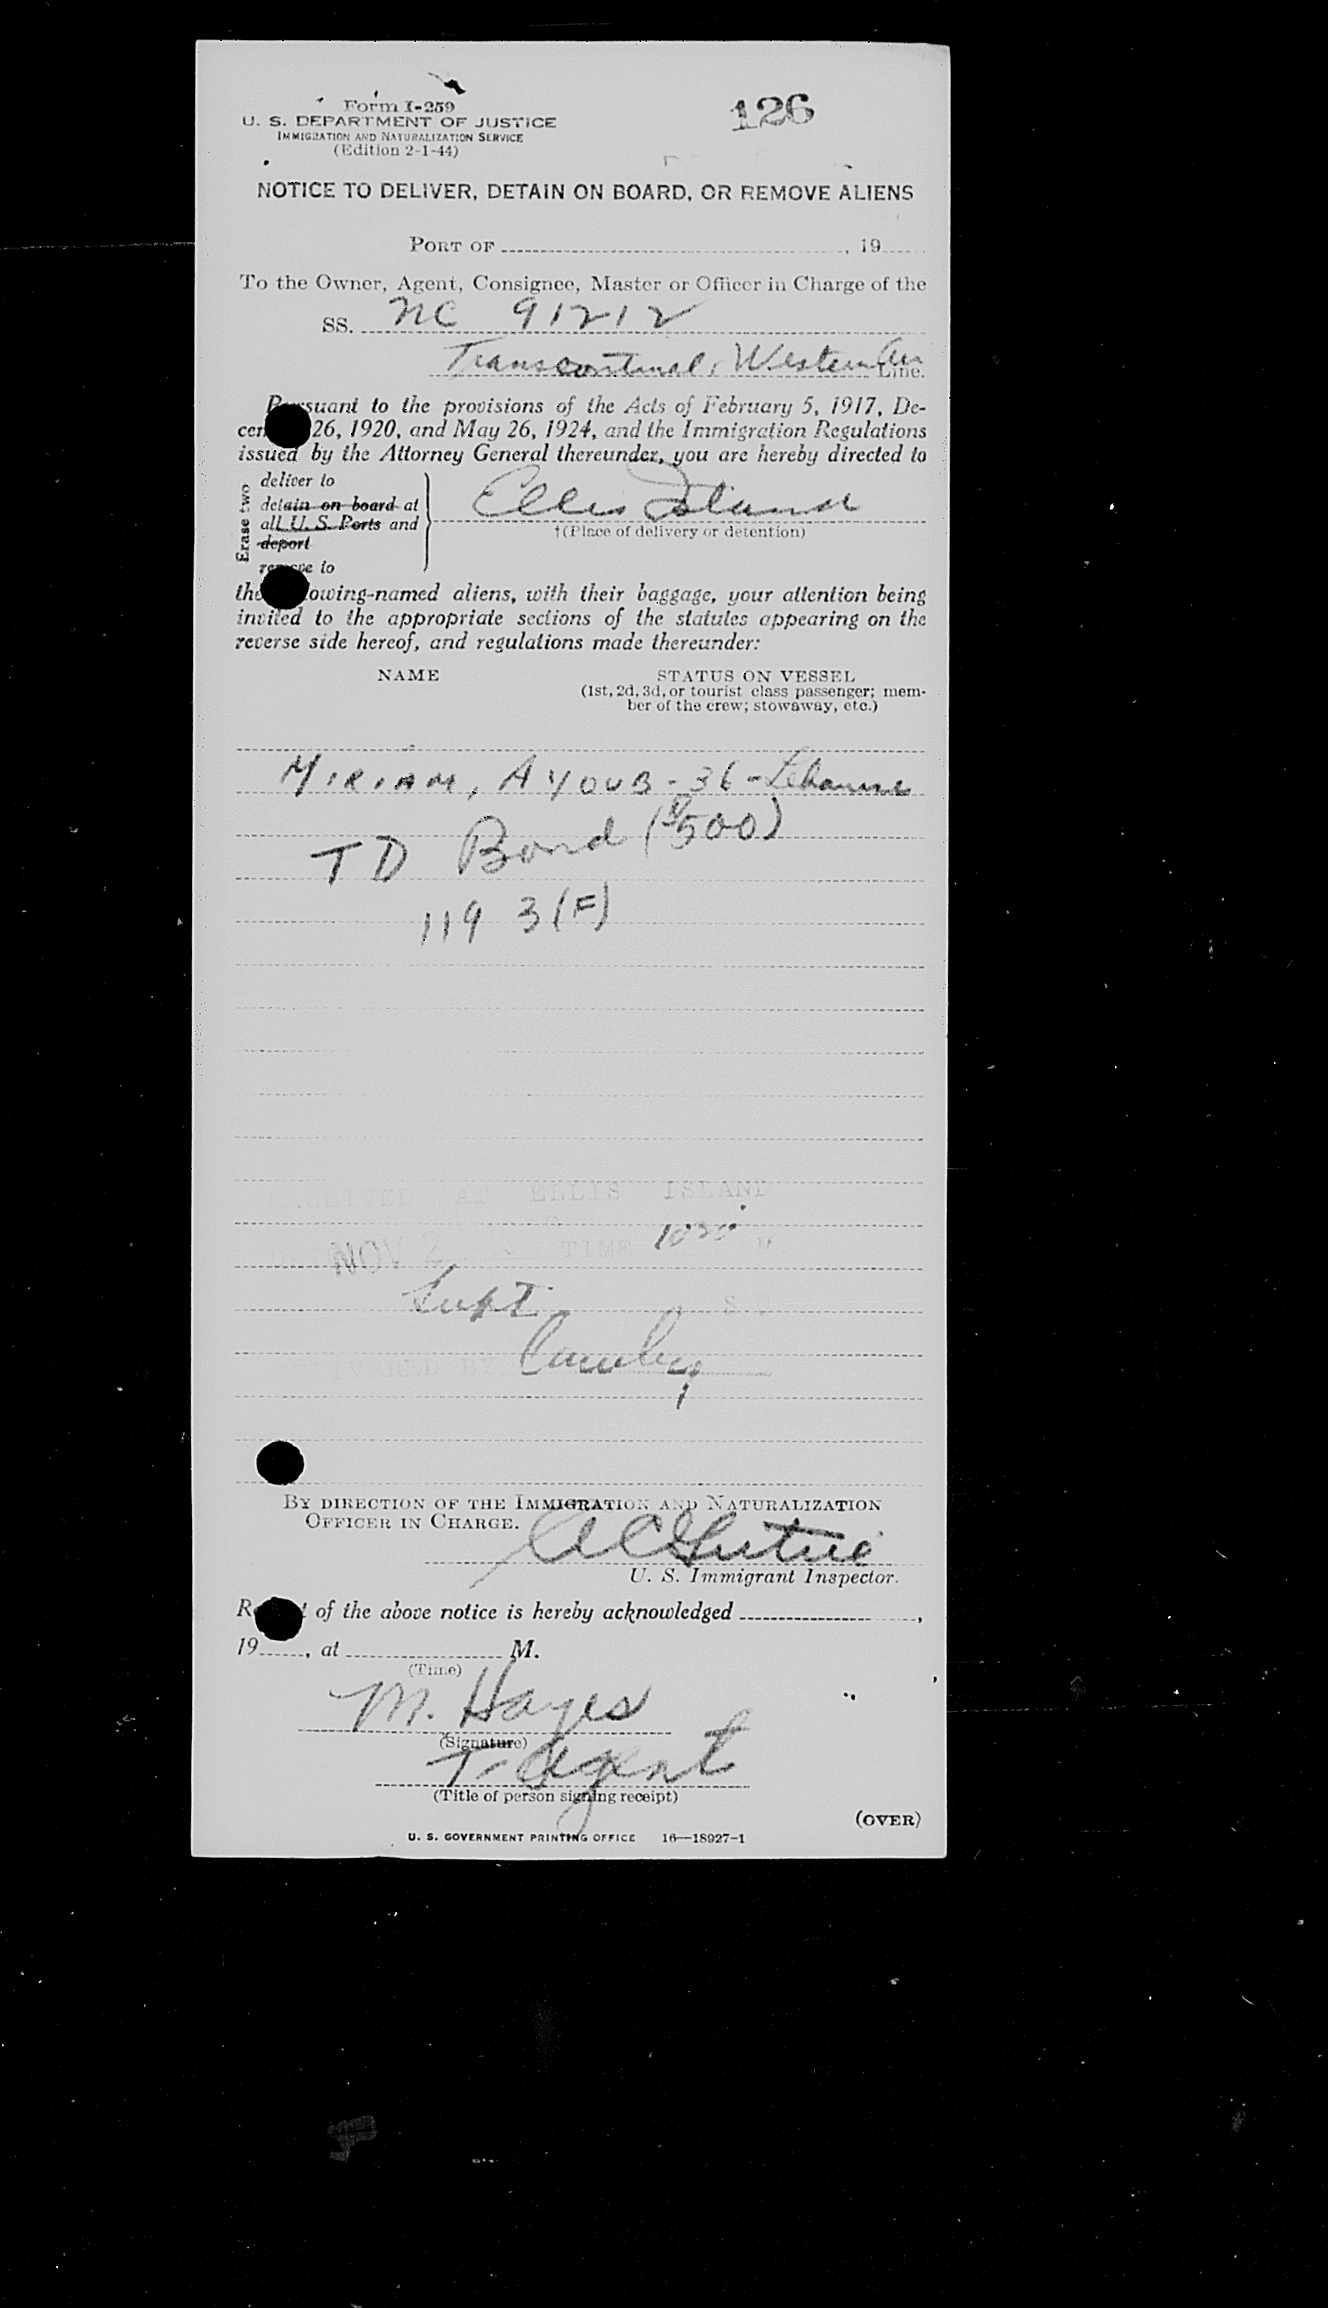 Form I-259
126
U. S. DEPARTMENT OF JUSTICE
IMMIGRATION AND NATURALIZATION SERVICE
(Edition 2-1-44)
NOTICE TO DELIVER, DETAIN ON BOARD, OR REMOVE ALIENS
PORT OF , 19
To the Owner, Agent, Consignee, Master or Officer in Charge of the
SS. NC 91212
Transcontinal, Western Air Line.
Pursuant to the provisions of the Acts of February 5, 1917, De-
26, 1920, and May 26, 1924, and the Immigration Regulations
issued by the Attorney General thereunder, you are hereby directed to
Erase two
deliver to
detain on board at
all U. S. Ports and
deport
remove to
Ellis Island
†(Place of delivery or detention)
the following-named aliens, with their baggage, your attention being
invited to the appropriate sections of the statutes appearing on the
reverse side hereof, and regulations made thereunder:
NAME STATUS ON VESSEL
(1st, 2d, 3d, or tourist class passenger; mem-
ber of the crew; stowaway, etc.)
MIRIAM, AYOUB - 36 - Lebanese
TD Bond ($500)
119 3(F)
RECEIVED AT ELLIS ISLAND
NOV 2 TIME 1020 M
Supt
BY
BY DIRECTION OF THE IMMIGRATION AND NATURALIZATION
OFFICER IN CHARGE.
U. S. Immigrant Inspector.
Receipt of the above notice is hereby acknowledged ,
19 , at M.
(Time)
M. Hayes
(Signature)
T. Agent
(Title of person signing receipt)
(OVER)
U. S. GOVERNMENT PRINTING OFFICE 16—18927-1